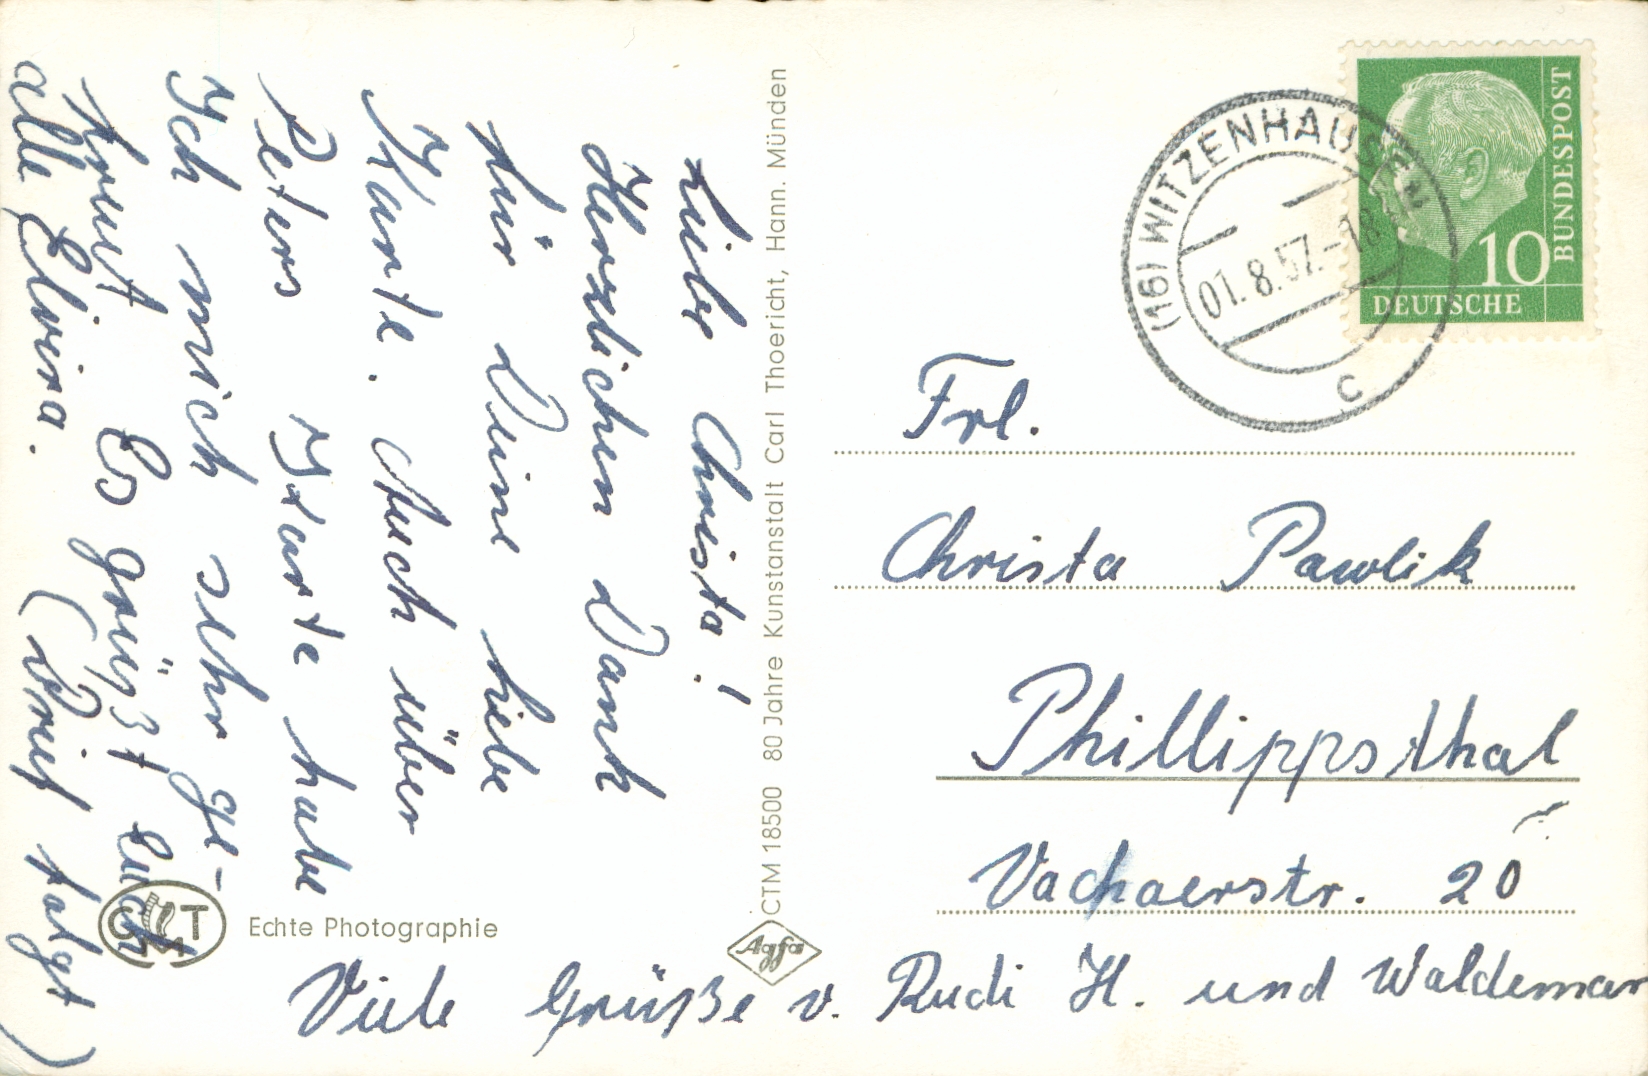 Liebe Christa!
Herzlichen Dank
für Deine liebe
Karte. Auch über
Peters Karte habe
Ich mich sehr ge-
freut Es grüßt Euch
alle Elvira. (Brief folgt)
CTM 18500 80 Jahre Kunstanstalt Carl Thoericht, Hann. Münden
Agfa
C T
M
Echte Photographie
(16) WITZENHAUSEN
01.8.57.-18
c
10
DEUTSCHE
BUNDESPOST
Frl.
Christa Pawlik
Phillippsthal
Vachaerstr. 20
Viele Grüße v. Rudi H. und Waldemar